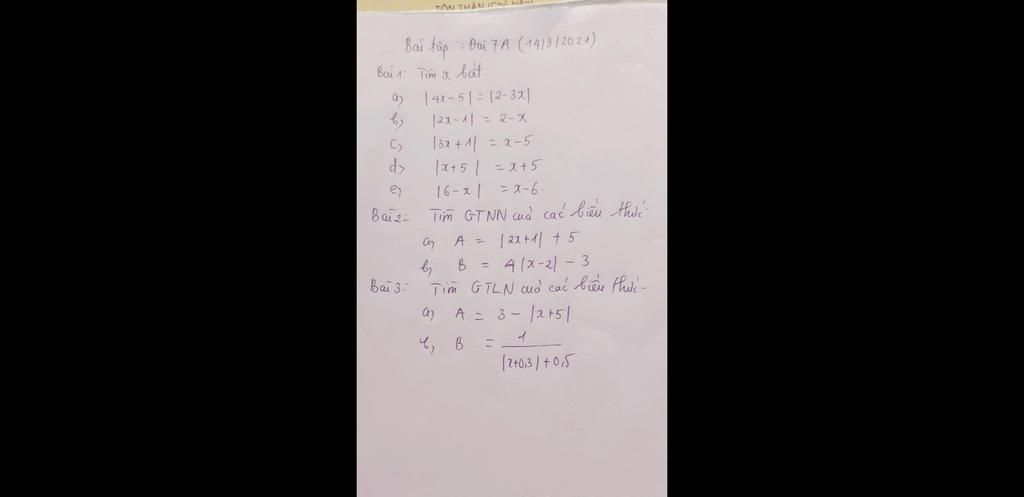 TÔN THÂN (Chủ biên)
Bài tập : Đại 7A (14/9/2021)
Bài 1: Tìm x biết.
a) |4x-5| = |2-3x|
b) |2x-1| = 2-x
c) |3x+1| = x-5
d) |x+5| = x+5
e) |6-x| = x-6.
Bài 2: Tìm GTNN của các biểu thức.
a) A = |2x+1| + 5
b) B = 4|x-2| - 3
Bài 3: Tìm GTLN của các biểu thức.
a) A = 3 - |x+5|
b) B = 1
|x+0,3|+0,5